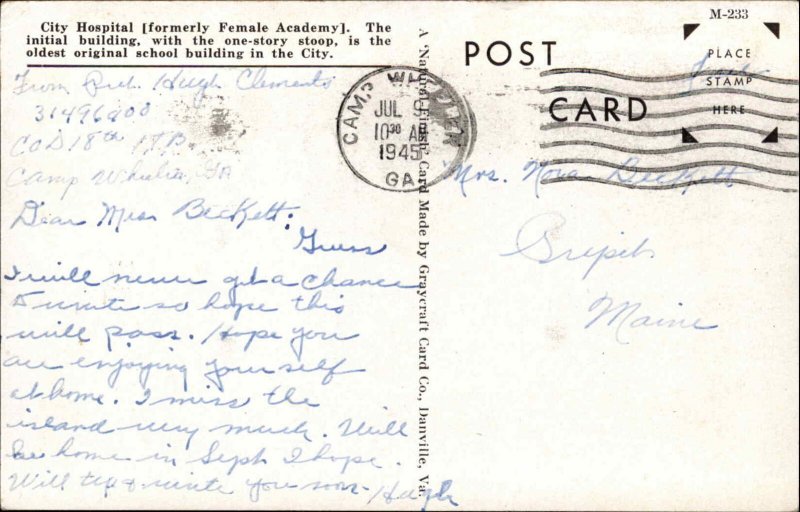 City Hospital [formerly Female Academy]. The
initial building, with the one-story stoop, is the
oldest original school building in the City.
From Pvt. Hugh Clements
31496200
Co D 18th
Camp Wheeler, Ga
Dear Miss Beckett:
Guess
I will never get a chance
to write so hope this
will pass. Hope you
are enjoying yourself
at home. I miss the
island very much. Will
be home in Sept I hope.
Will try & write you soon. Hugh
A "Natural-Finish" Card Made by Graycraft Card Co., Danville, Va.
M-233
POST
CARD
PLACE
STAMP
HERE
CAMP WHEELER
JUL 9
10 30 AM
1945
GA.
Mrs. Nora Beckett
Maine